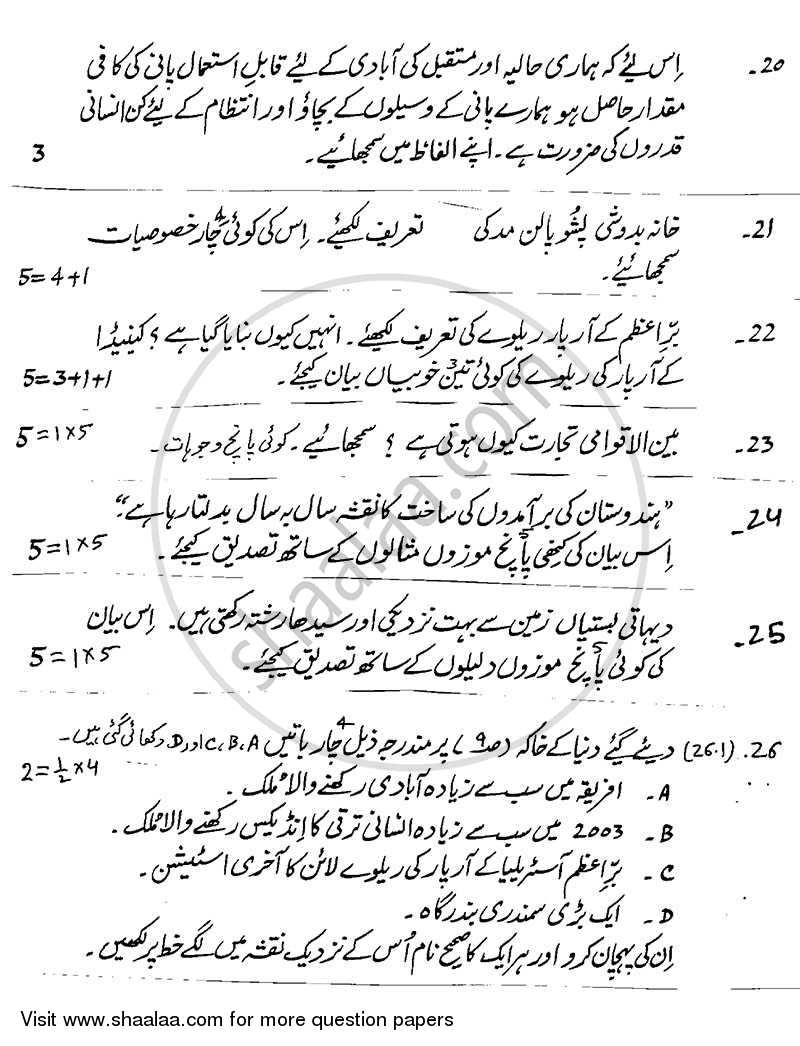 20۔ اِس لیٔے کہ ہماری حالیہ اور مستقبل کی آبادی کے لیٔے قابلِ استعمال پانی کی کافی
مقدار حاصل ہو ہمارے پانی کے وسیلوں کے بچاؤ اور انتظام کے لیٔے کن انسانی
قدروں کی ضرورت ہے۔ اپنے الفاظ میں سمجھائیے۔ 3
21۔ خانہ بدوشی پشُو پالن مد کی تعریف لکھیٔے۔ اِس کی کوئی چار 4 خصوصیات
سمجھائیے۔ 5=4+1
22۔ برِّاعظم کے آر پار ریلوے کی تعریف لکھیٔے۔ انہیں کیوں بنایا گیا ہے؟ کینیڈا
کے آر پار کی ریلوے کی کوئی تین 3 خوبیاں بیان کیجیٔے۔ 5=3+1+1
23۔ بین الاقوامی تجارت کیوں ہوتی ہے؟ سمجھائیے۔ کوئی پانچ وجوہات۔ 5=1×5
24۔ "ہندوستان کی برآمدوں کی ساخت کا نقشہ سال بہ سال بدلتا رہا ہے"۔
اِس بیان کی کِنھی پانچ 5 موزوں مثالوں کے ساتھ تصدیق کیجیٔے۔ 5=1×5
25۔ دیہاتی بستیاں زمین سے بہت نزدیکی اور سیدھا رشتہ رکھتی ہیں۔ اِس بیان
کی کوئی پانچ 5 موزوں دلیلوں کے ساتھ تصدیق کیجیٔے۔ 5=1×5
26۔ (26.1) دیٔے گیٔے دنیا کے خاکہ (صہ 9) پر مندرجہ ذیل چار 4 باتیں A، B، C اور D دکھائی گئی ہیں۔
2=½×4
A۔ افریقہ میں سب سے زیادہ آبادی رکھنے والا مُلک۔
B۔ 2003 میں سب سے زیادہ انسانی ترقی کا اِنڈیکس رکھنے والا مُلک۔
C۔ برِّاعظم آسٹریلیا کے آر پار کی ریلوے لائن کا آخری اسٹیشن۔
D۔ ایک بڑی سمندری بندرگاہ۔
اِن کی پہچان کرو اور ہر ایک کا صحیح نام اُس کے نزدیک نقشہ میں لگے خط پر لکھیں۔
shaalaa.com
Visit www.shaalaa.com for more question papers